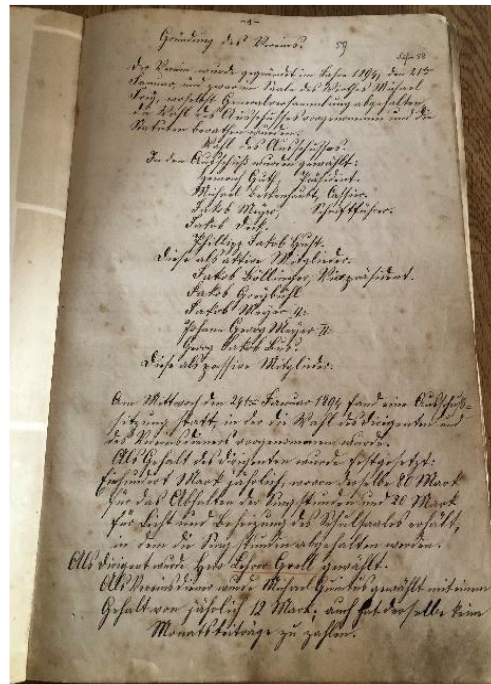 -1-
Gründung des Vereins.
59
Der Verein wurde gegründet im Jahre 1894, den 21ten
Januar und zwar im Saale des Wirthes Michael
woselbst Generalversammlung abgehalten,
die Wahl des Ausschusses vorgenommen und die
Statuten berathen wurden.
Wahl des Ausschusses.
In den Ausschuß wurden gewählt:
Guth, Präsident.
Michael Cassier.
Jakob Meyer, Schriftführer.
Jakob
Philipp Jakob
Diese als aktive Mitglieder.
Jakob Böllinger, Vicepräsident.
Jakob
Jakob Meyer
Johann Georg Meyer
Georg Jakob
Diese als passive Mitglieder.
Am Mittwoch den 24ten Januar 1894 fand eine Ausschuß-
sitzung statt, in der die Wahl des Dirigenten und
des Vereinsdieners vorgenommen wurde.
Als Gehalt des Dirigenten wurde festgesetzt:
Einhundert Mark jährlich, wovon derselbe 80 Mark
für das Abhalten der Singstunden und 20 Mark
für Licht und Beheizung des Schulsaales erhält,
in dem die Singstunden abgehalten werden.
Als Dirigent wurde Herr Lehrer Groll gewählt.
Als Vereinsdiener wurde Michael gewählt mit einem
Gehalt von jährlich 12 Mark, auch hat derselbe keine
Monatsbeiträge zu zahlen.